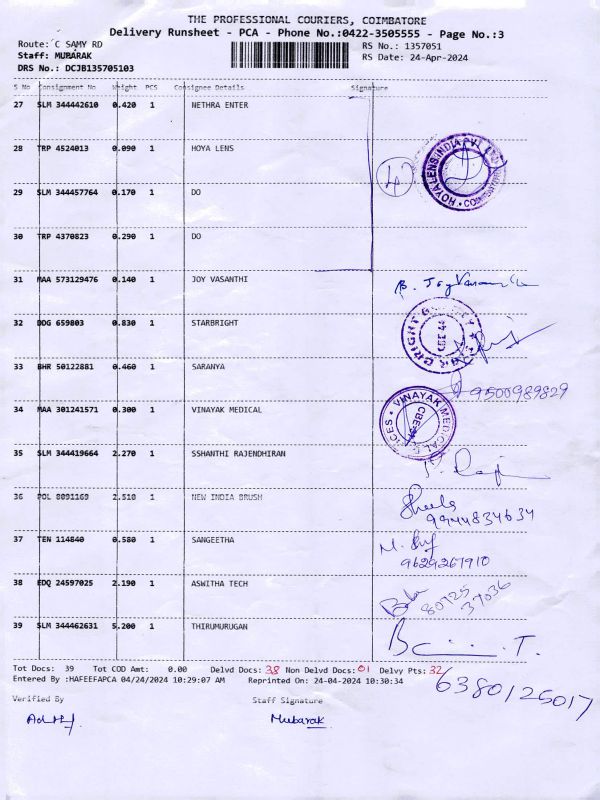 THE PROFESSIONAL COURIERS, COIMBATORE
Delivery Runsheet - PCA - Phone No.:0422-3505555 - Page No.:3
Route: C SAMY RD
RS No.: 1357051
Staff: MUBARAK
RS Date: 24-Apr-2024
DRS No.: DCJB135705103
S No Consignment No Weight PCS Consignee Details Signature
27 SLM 344442610 0.420 1 NETHRA ENTER
28 TRP 4524013 0.090 1 HOYA LENS
4 HOYA LENS INDIA PVT LTD
29 SLM 344457764 0.170 1 DO
30 TRP 4370823 0.290 1 DO
31 MAA 573129476 0.140 1 JOY VASANTHI
32 DDG 659803 0.830 1 STARBRIGHT
33 BHR 50122881 0.460 1 SARANYA
9500989829
34 MAA 301241571 0.300 1 VINAYAK MEDICAL
VINAYAK MEDICAL
35 SLM 344419664 2.270 1 SSHANTHI RAJENDHIRAN
36 POL 8091169 2.510 1 NEW INDIA BRUSH
Sheela
9944834634
37 TEN 114840 0.580 1 SANGEETHA
9629267910
38 EDQ 24597025 2.190 1 ASWITHA TECH
80725
37036
39 SLM 344462631 5.200 1 THIRUMURUGAN
Tot Docs: 39 Tot COD Amt: 0.00 Delvd Docs: 38 Non Delvd Docs: 01 Delvy Pts: 32
Entered By :HAFEEFAPCA 04/24/2024 10:29:07 AM Reprinted On: 24-04-2024 10:30:34
6380125017
Verified By Staff Signature
Mubarak